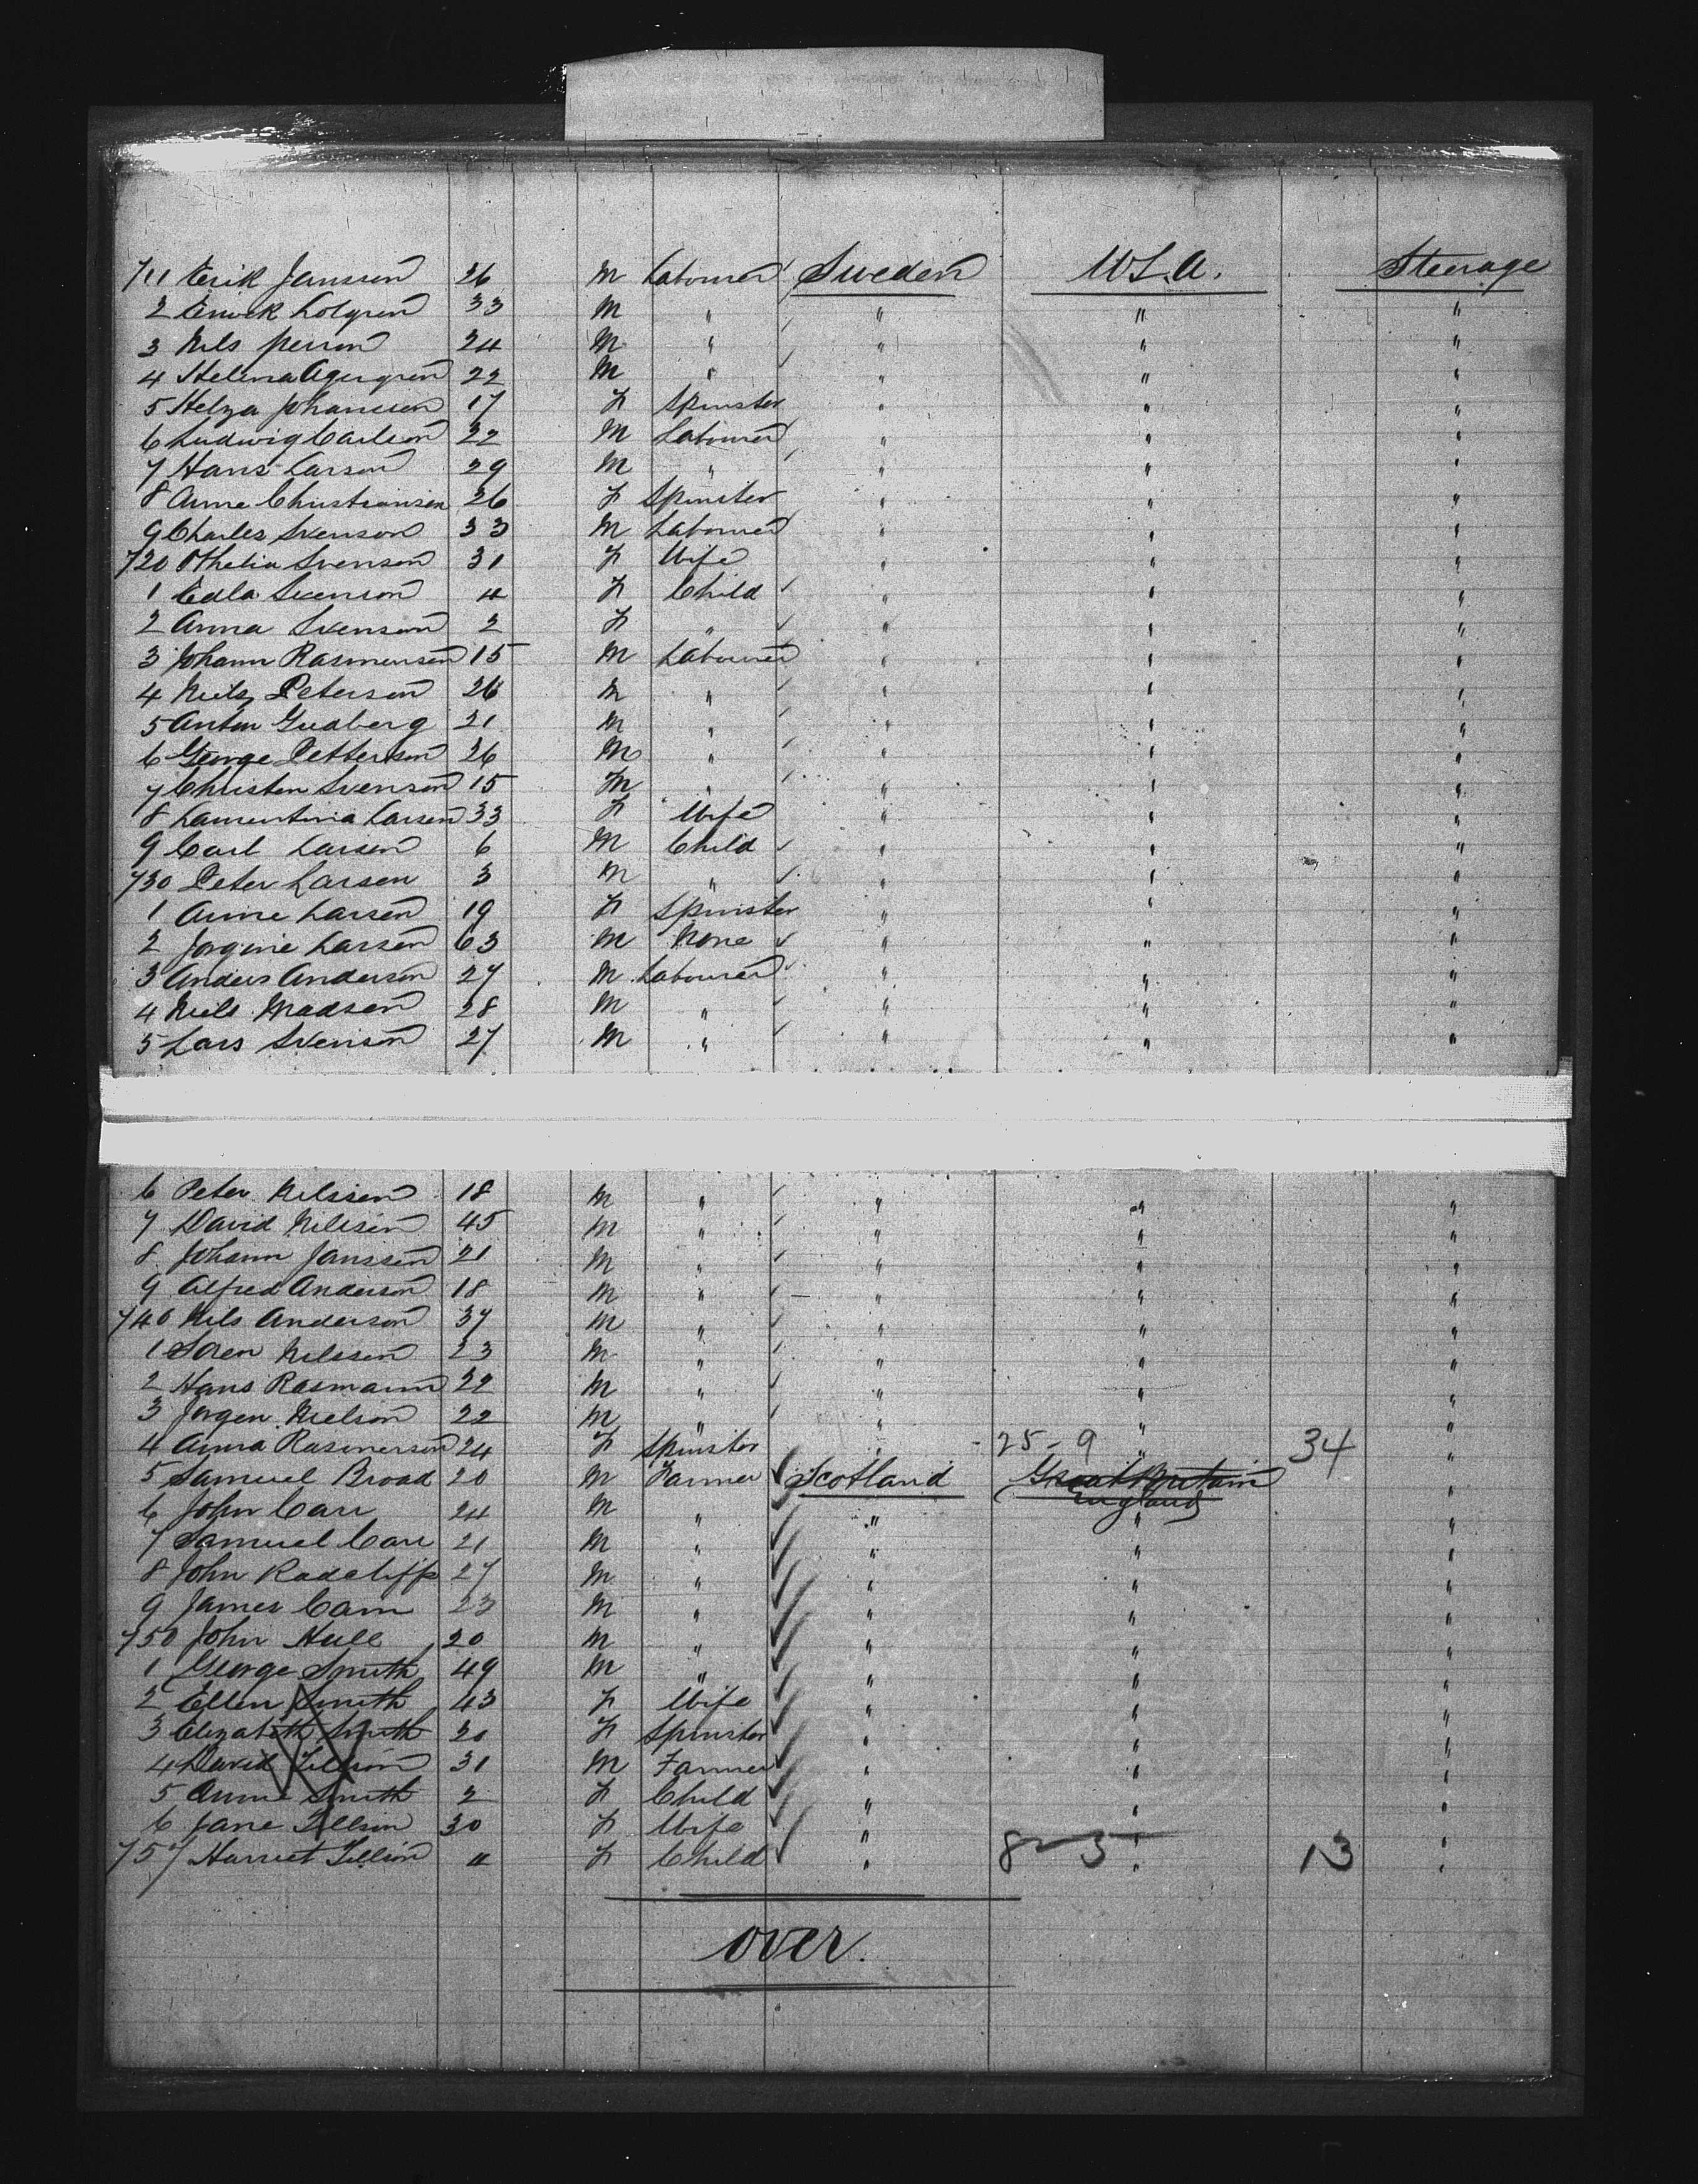 711 Erik Jansson 26 M Labourer Sweden U.S.A. Steerage
2 Lofgren 33 M " " " "
3 Nils Person 24 M " " " "
4 Helena Agergren 22 M " " " "
5 Helga Johanssen 17 F Spinster " " "
6 Ludwig Carlson 22 M Labourer " " "
7 Hans Larson 29 M " " " "
8 Anne Christiansen 26 F Spinster " " "
9 Charles Svenson 33 M Labourer " " "
720 Othelia Svenson 31 F Wife " " "
1 Edla Svenson 4 F Child " " "
2 Anna Svenson 2 F " " " "
3 Johann Rasmussen 15 M Labourer " " "
4 Niels Peterson 26 M " " " "
5 Anton Gudberg 21 M " " " "
6 George Petterson 26 M " " " "
7 Christen Svenson 15 M " " " "
8 Laurentina Larsen 33 F Wife " " "
9 Carl Larsen 6 M Child " " "
730 Peter Larsen 3 M " " " "
1 Anne Larsen 19 F Spinster " " "
2 Jorgine Larsen 63 M None " " "
3 Anders Anderson 27 M Labourer " " "
4 Niels Madsen 28 M " " " "
5 Lars Svenson 27 M " " " "
6 Peter Nilssen 18 M " " " "
7 David Nilssen 45 M " " " "
8 Johann Janssen 21 M " " " "
9 Alfred Anderson 18 M " " " "
740 Nils Anderson 37 M " " " "
1 Soren Nilssen 23 M " " " "
2 Hans Rasmann 22 M " " " "
3 Jorgen Nielson 22 M " " " "
4 Anna Rasmerson 24 F Spinster " 25-9 " 34 "
5 Samuel Broad 20 M Farmer Scotland Great Britain "
England
6 John Carr 24 M " " " "
7 Samuel Carr 21 M " " " "
8 John Radcliff 27 M " " " "
9 James Cam 23 M " " " "
750 John Hull 20 M " " " "
1 George Smith 49 M " " " "
2 Ellen Smith 43 F Wife " " "
3 Elizabeth Smith 20 F Spinster " " "
4 David Tillson 31 M Farmer " " "
5 Annie Smith 2 F Child " " "
6 Jane Tillson 30 F Wife " " "
757 Harriet Tillson 4 F Child " 8-5 " 13 "
over.